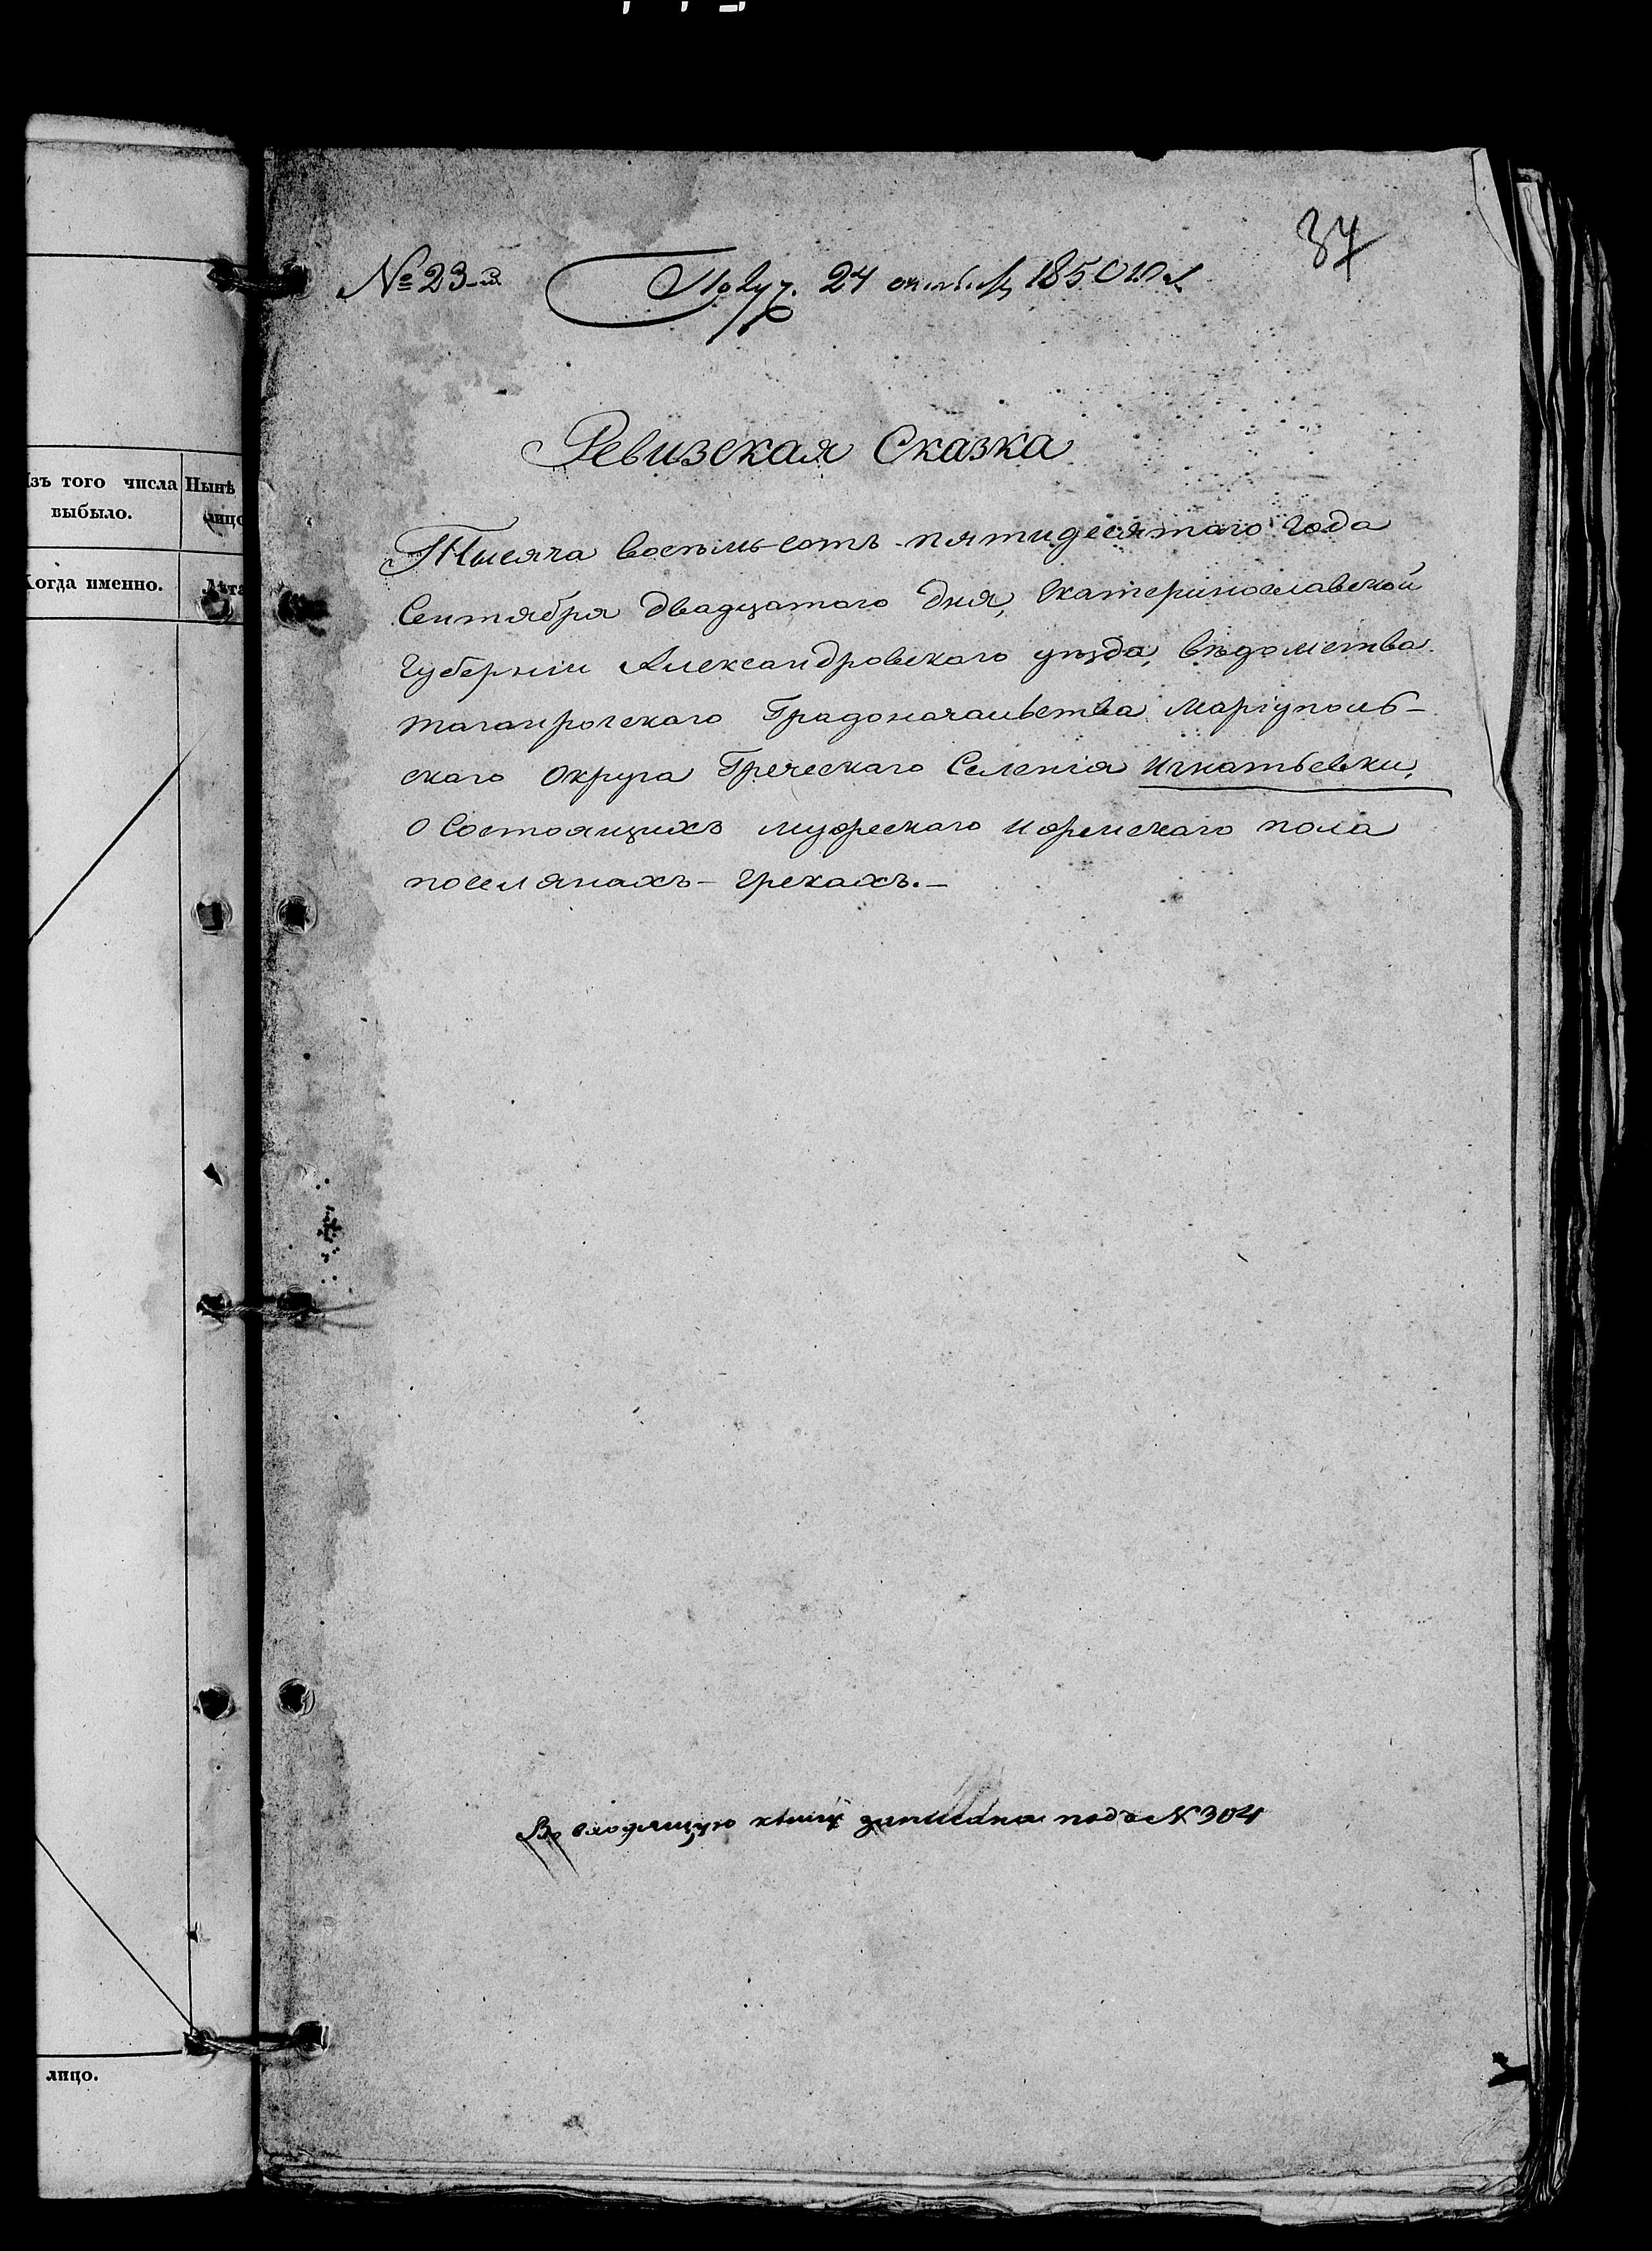 Изъ того числа
выбыло.
Нынѣ
лицо
Когда именно.
Лѣта
лицо.
37
№ 23-й
Получ. 24 октября 1850 года
Ревизская Сказка
Тысяча восемь-сотъ-пятидесятаго года
Сентября двадцатого дня, Екатеринославской
Губерніи Александровского уѣзда, вѣдомства
Таганрогскаго Градоначальства Маріуполь-
скаго Округа Греческаго Селенія Игнатьевки,
о Состоящихъ мужескаго и женскаго пола
поселянахъ-грекахъ.-
Во входящую книгу записана подъ № 304